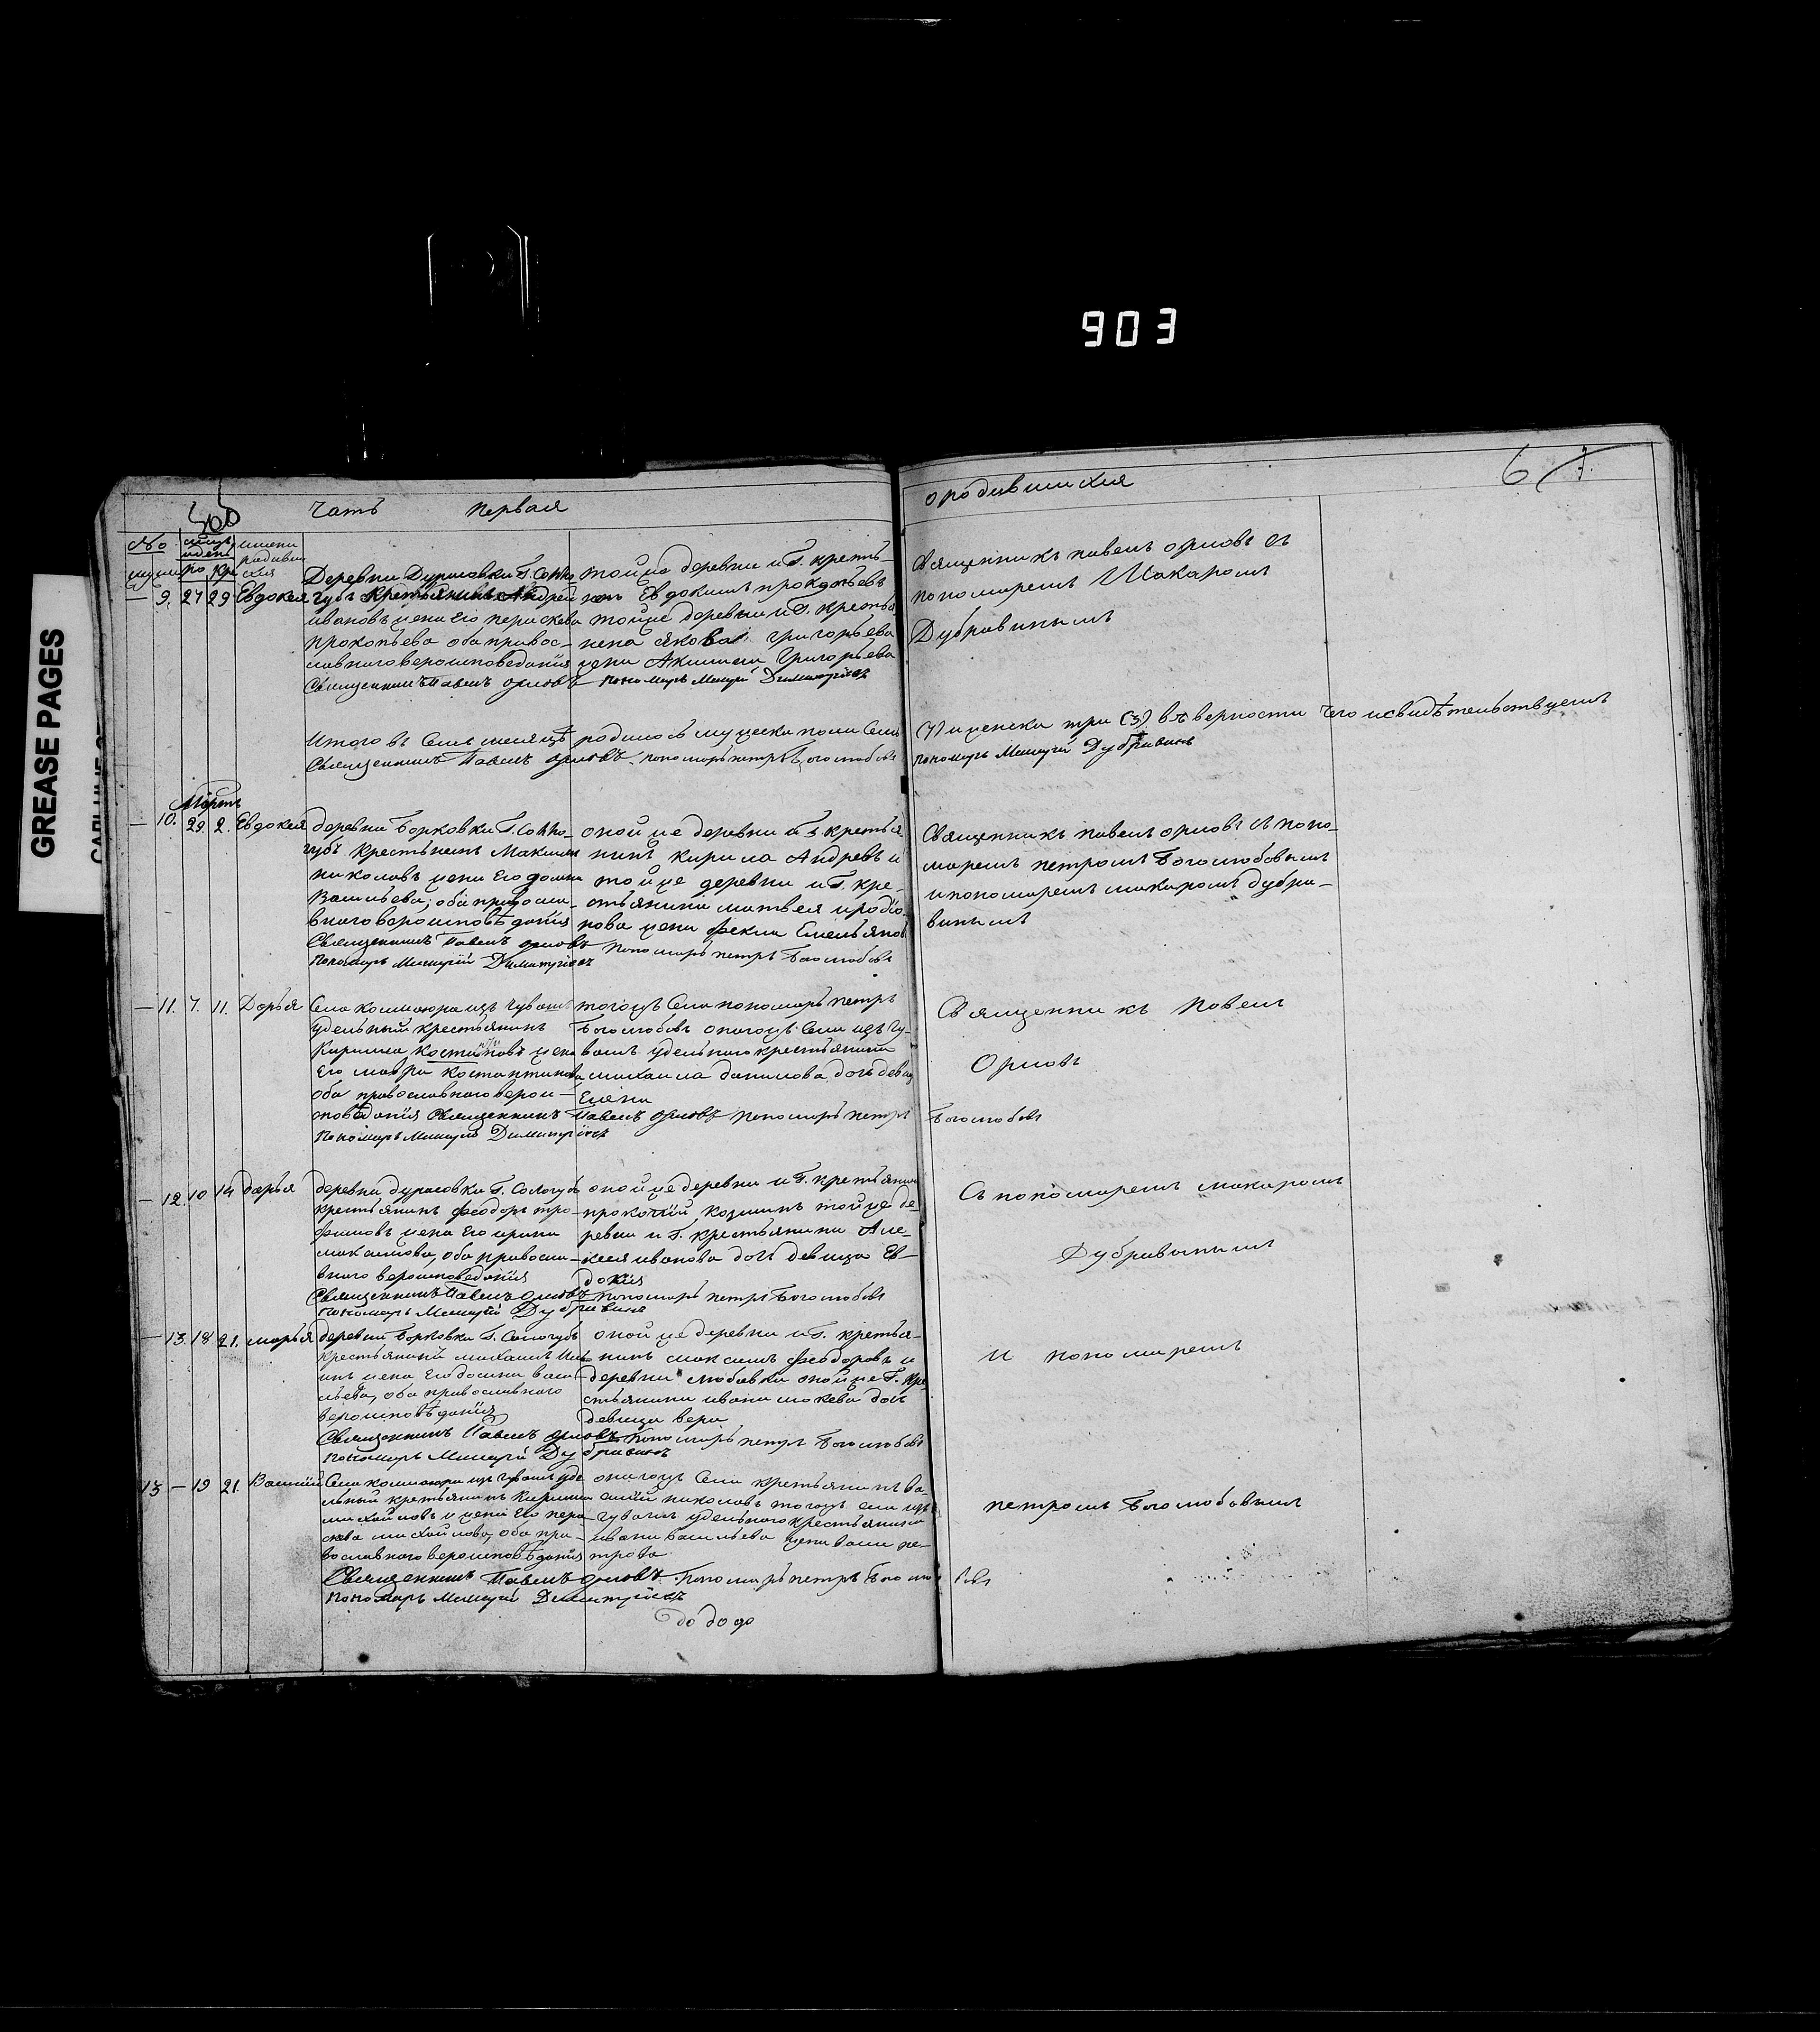 903
GREASE PAGES
Часть первая
о родившихся
6
№
имена
родивш
ихся
ро кре
9. 27 29 Евдокея
Деревни Дурасовки Г. Солло
губъ крестьянинъ Андрей
ивановъ жена его параскева
прокопьева оба правос-
лавнаго вероисповедания
Священникъ Павелъ орловъ
той же деревни и Г. кресть-
нинъ Евдокимъ прокопьевъ
той же деревни и Г. крестья
нина якова григорьева
жена Акилина григорьева
пономарь Димитріевъ
Священникъ павелъ орловъ съ
пономаремъ Макаромъ
Дубравинымъ
Итого въ семъ месяцѣ родилось мужеска пола семь
(7) и женска три (3) въ верности чего и свидѣтельствуемъ
Священникъ Павелъ орловъ пономарь петръ боголюбовъ
пономарь Дубравинъ
Мартъ
10. 29. 2. Евдокея
деревни Борковки Г. Солло-
губъ крестьнинъ Максимъ
николаевъ жена его домна
Васильева, оба правосла-
внаго вероисповѣдания
Священникъ Павелъ орловъ
пономарь Димитріевъ
оной же деревни и Г. крестья
нинъ кирила Андреевъ и
той же деревни и Г. кре-
стьянина матвея иродіо
нова жена фекла Емельянов
пономарь петръ боголюбовъ
Священникъ павелъ орловъ съ поно-
маремъ петромъ боголюбовымъ
и пономаремъ макаромъ дубра-
винымъ
11. 7. 11. Дарья
Села изъ чувашъ
удельный крестьянинъ
Кирила костиновъ жена
его мавра костантинова
оба православнаго верои-
споведания Священникъ Павелъ орловъ пономарь петръ боголюбовъ
пономарь Димитріевъ
тогожъ села пономарь петръ
боголюбовъ оногожъ села изъ чу-
вашъ удельнаго крестьянина
михаила данилова дочь девица
Елена
Священникъ павелъ
Орловъ
12. 10 14 дарья
деревни дурасовки Г. Сологубъ
крестьянинъ феодоръ тро-
фимовъ жена его ирина
максимова, оба правосла-
внаго вероисповедания
Священникъ Павелъ орловъ пономарь петръ боголюбовъ
пономарь Дубравинъ
оной же деревни и Г. крестьянинъ
прокопій козминъ той же де-
ревни и Г. крестьянина Але-
ксея иванова дочь девица Ев-
докия
Съ пономаремъ макаромъ
Дубравинымъ
13. 18 21. марья
деревни Борковки Г. Сологубъ
крестьянинъ михаилъ
инъ жена его домна васи-
льева, оба православнаго
вероисповѣдания
Священникъ Павелъ орловъ пономарь петръ боголюбовъ
пономарь Дубравинъ
оной же деревни и Г. крестья-
нинъ максимъ феодоровъ и
деревни любовки оной же Г. кре
стьянина ивана мокева дочь
девица вера
и пономаремъ
13 — 19 21. Василій
Села изъ чувашъ уде
льный крестьянинъ Кирила
михайловъ и жена его пара
скева михайлова, оба пра-
вославнаго вероисповѣдания
Священникъ Павелъ орловъ. пономарь петръ боголю бовъ
пономарь Димитріевъ
оногожъ села крестьянинъ ва-
силій николаевъ тогожъ села изъ
чувашъ удельнаго крестьянина
ивана васильева жена васи пе-
трова
петромъ боголюбовымъ